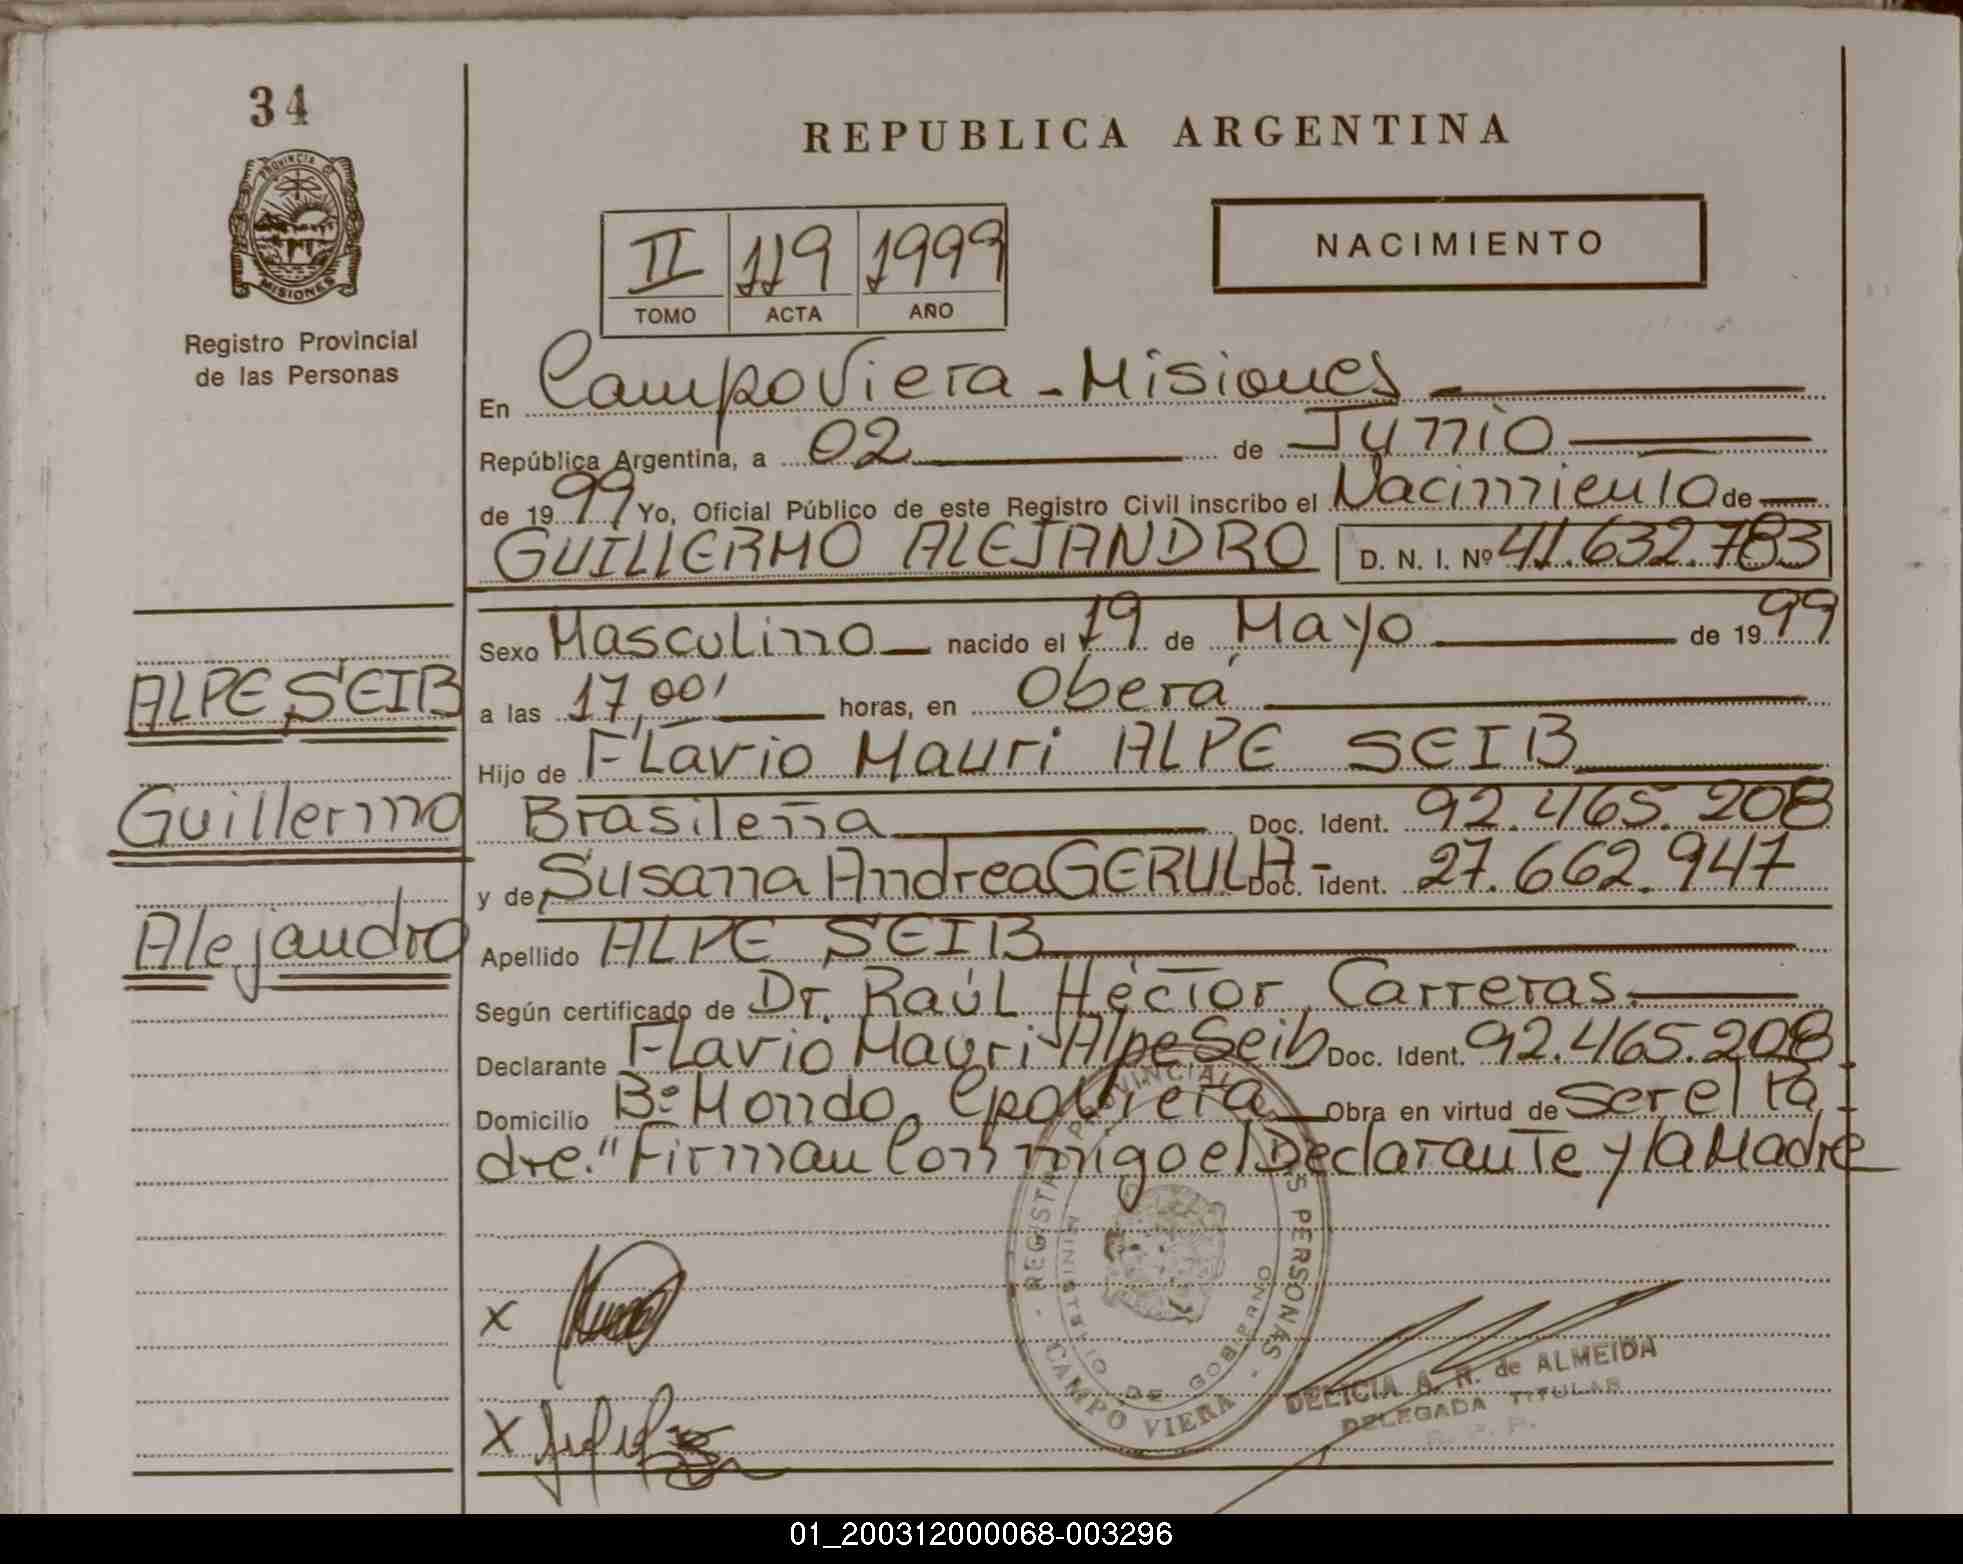 34
PROVINCIA DE
MISIONES
Registro Provincial
de las Personas
ALPE SEIB
Guillermo
Alejandro
REPUBLICA ARGENTINA
II 119 1999
TOMO ACTA AÑO
NACIMIENTO
En Campo Viera - Misiones
República Argentina, a 02 de Junio
de 1999 Yo, Oficial Público de este Registro Civil inscribo el Nacimiento de
GUILLERMO ALEJANDRO D. N. I. Nº 41.632.783
Sexo Masculino nacido el 19 de Mayo de 1999
a las 17,00' horas, en Oberá
Hijo de Flavio Mauri ALPE SEIB
Brasileña Doc. Ident. 92.465.208
y de Susana Andrea GERULA - Doc. Ident. 27.662.947
Apellido ALPE SEIB
Según certificado de Dr. Raúl Héctor Carreras.
Declarante Flavio Mauri Alpe Seib Doc. Ident. 92.465.208
Domicilio Bº Mondo, Cpo Viera Obra en virtud de ser el Pa
dre." Firman Conmigo el Declarante y la Madre
REGISTRO PROVINCIAL PERSONAS - CAMPO VIERA -
MINISTERIO DE GOBIERNO
x
x
DELICIA A. N. de ALMEIDA
DELEGADA TITULAR
R. P. P.
01_200312000068-003296